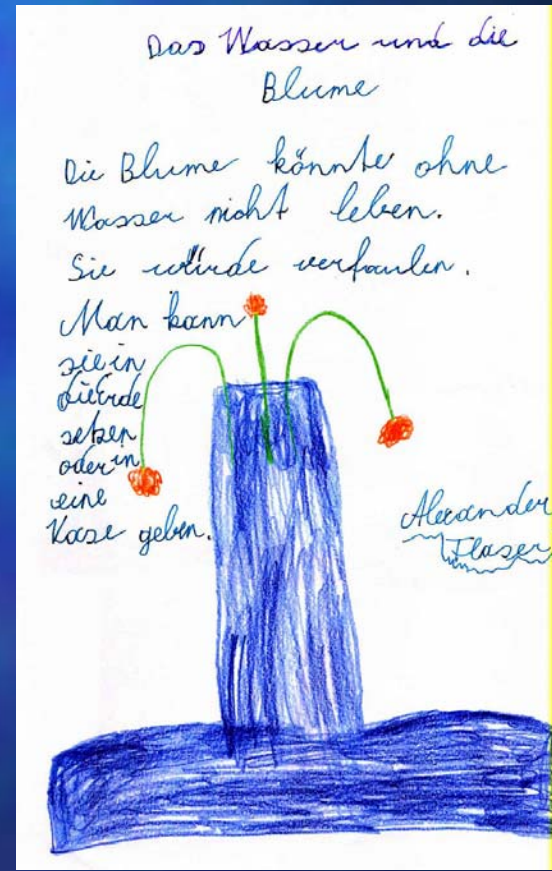 Das Wasser und die
Blume
Die Blume könnte ohne
Wasser nicht leben.
Sie würde verfaulen.
Man kann
sie in
die Erde
setzen
oder in
eine
Vase geben.
Alexander